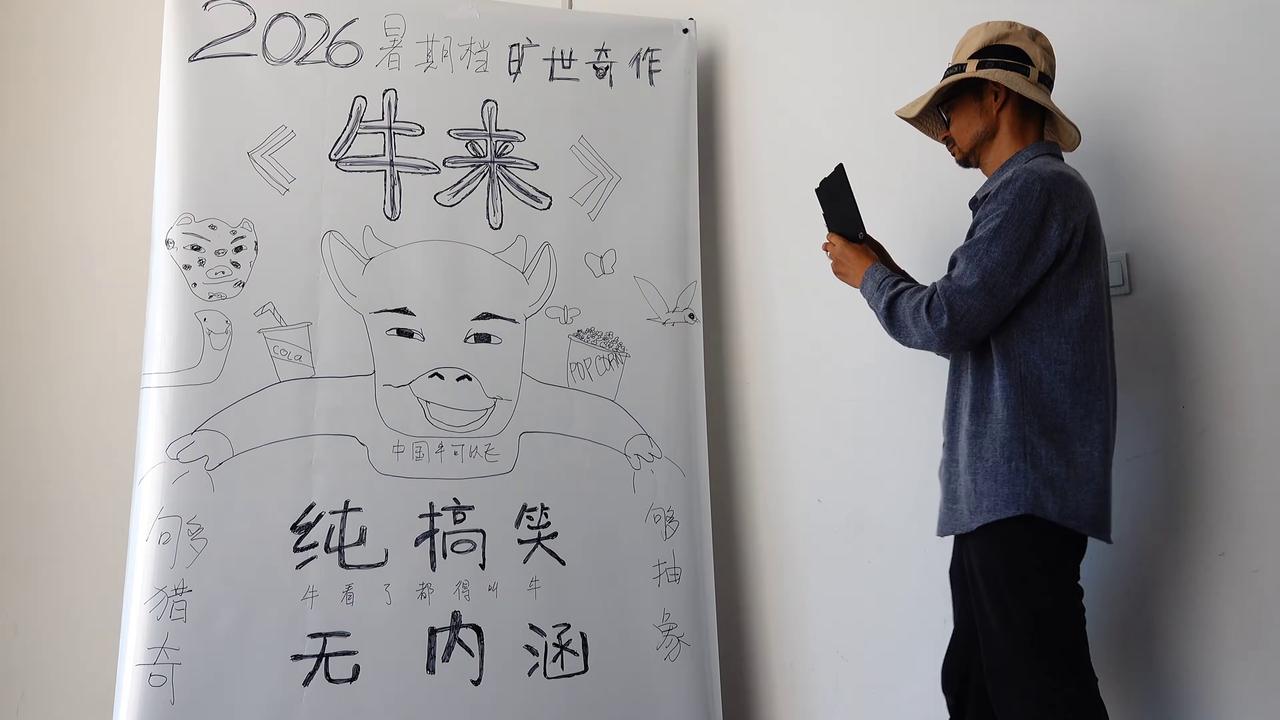 2026 暑期档 旷世奇作
《牛来》
COLA
POPCORN
中国牛可以飞
纯搞笑
牛看了都得叫牛
无内涵
够猎奇
够抽象